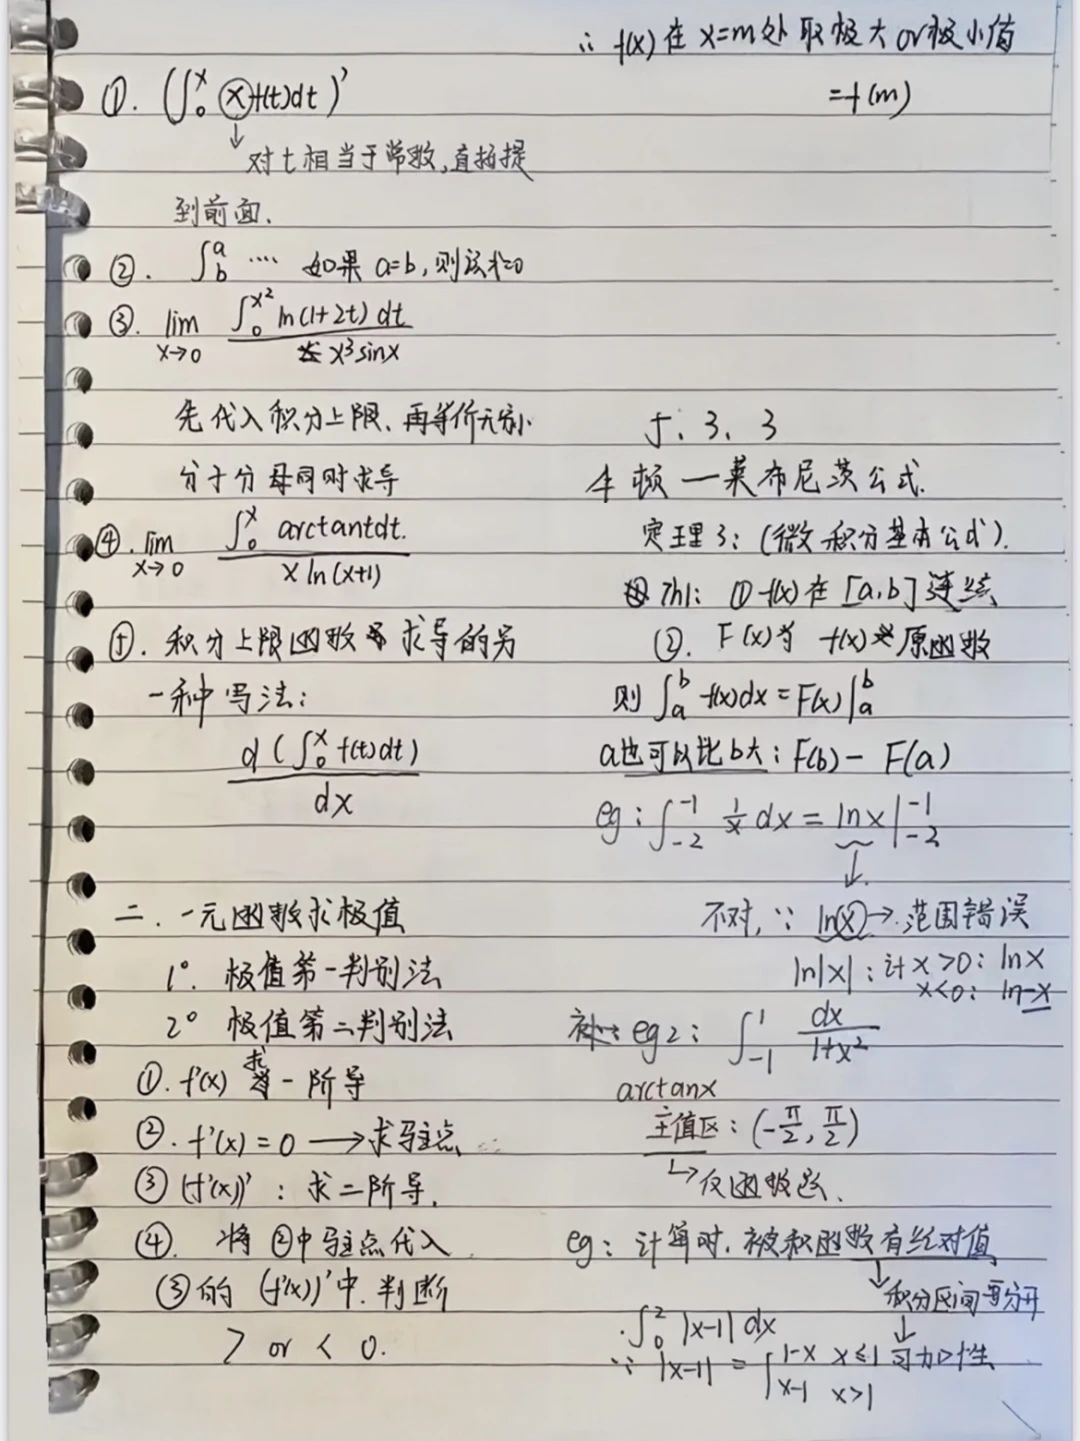 ①. (∫₀ˣ xf(t)dt)'
↓ 对t相当于常数,直接提
到前面.
②. ∫_b^a .... 如果a=b,则该式=0
③. lim x→0 ∫₀^{x²} ln(1+2t)dt / x³sinx
先代入积分上限、再等价无穷小
分子分母同时求导
④. lim x→0 ∫₀ˣ arctantdt. / x ln(x+1)
⑤. 积分上限函数求导的另
一种写法:
d(∫₀ˣ f(t)dt) / dx
二.一元函数求极值
1°. 极值第一判别法
2° 极值第二判别法
①. f'(x) 求一阶导
②. f'(x)=0 → 求驻点
③ (f'(x))' : 求二阶导.
④. 将②中驻点代入
③的 (f'(x))'中.判断
> or < 0.
∴ f(x)在x=m处取极大or极小值
=f(m)
5.3.3
牛顿一莱布尼茨公式.
定理3:(微积分基本公式).
Th1: ①f(x)在[a,b]连续
②. F(x)为 f(x) 原函数
则 ∫_a^b f(x)dx=F(x)|_a^b
a也可以比b大: F(b)- F(a)
eg: ∫_{-2}^{-1} 1/x dx = lnx|_{-2}^{-1}
↓
不对, ∵ ln(x)→范围错误
ln|x| : 计x>0: lnx
x<0: ln-x
补: eg2: ∫_{-1}^{1} dx/1+x²
arctanx
主值区: (-π/2, π/2)
↳仅函数
eg: 计算时.被积函数有绝对值
↓积分区间要分开
∫₀² |x-1| dx ↓
∵ |x-1| = { 1-x x≤1 可加性
x-1 x>1